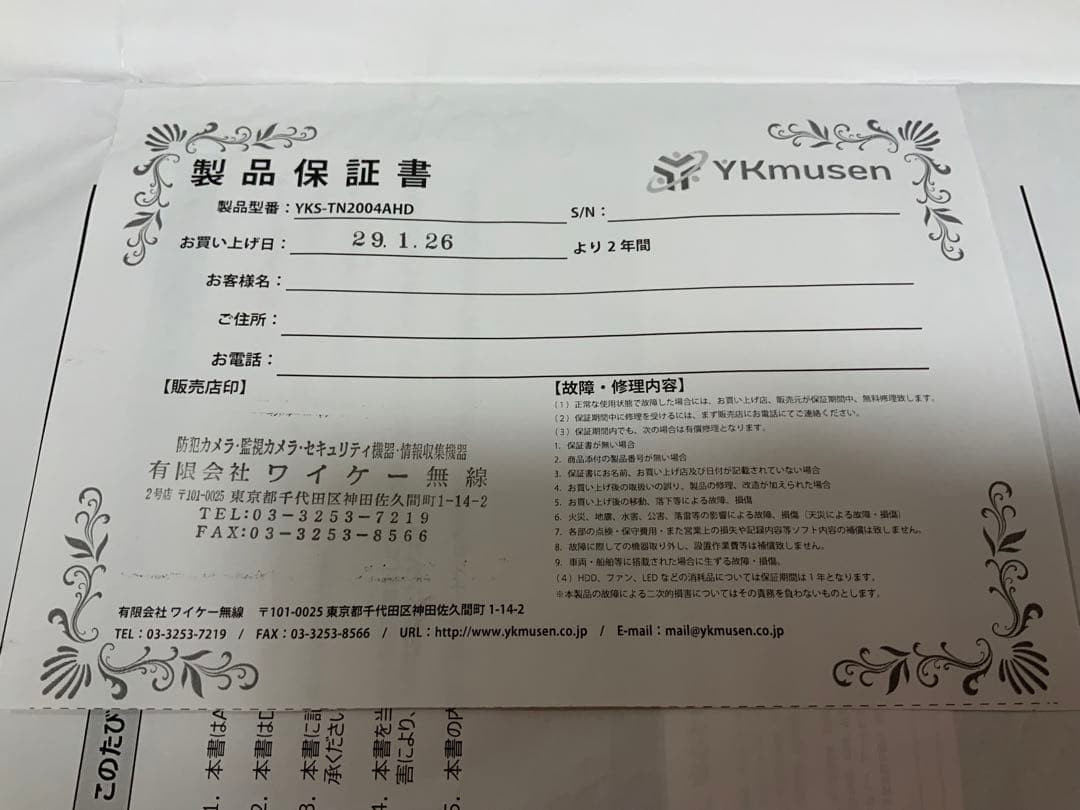 製品保証書
YKmusen
製品型番：YKS-TN2004AHD
S/N：
お買い上げ日：29.1.26 より2年間
お客様名：
ご住所：
お電話：
【販売店印】
防犯カメラ・監視カメラ・セキュリティ機器・情報収集機器
有限会社 ワイケー無線
2号店 〒101-0025 東京都千代田区神田佐久間町1-14-2
TEL:03-3253-7219
FAX:03-3253-8566
【故障・修理内容】
（1）正常な使用状態で故障した場合には、お買い上げ店、販売元が保証期間中、無料修理致します。
（2）保証期間中に修理を受けるには、まず販売店にお電話にてご連絡ください。
（3）保証期間内でも、次の場合は有償修理となります。
1. 保証書が無い場合
2. 商品添付の製品番号が無い場合
3. 保証書にお名前、お買い上げ店及び日付が記載されていない場合
4. お買い上げ後の取扱いの誤り、製品の修理、改造が加えられた場合
5. お買い上げ後の移動、落下等による故障、損傷
6. 火災、地震、水害、公害、落雷等の影響による故障、損傷（天災による故障・損傷）
7. 各部の点検・保守費用・また営業上の損失や記録内容等ソフト内容の補償は致しません。
8. 故障に際しての機器取り外し、設置作業費等は補償致しません。
9. 車両・船舶等に搭載された場合に生ずる故障・損傷。
（4）HDD、ファン、LEDなどの消耗品については保証期間は1年となります。
※本製品の故障による二次的損害についてはその責務を負わないものとします。
有限会社 ワイケー無線 〒101-0025 東京都千代田区神田佐久間町 1-14-2
TEL：03-3253-7219 / FAX：03-3253-8566 / URL：http://www.ykmusen.co.jp / E-mail：mail@ykmusen.co.jp
このたび
1. 本書はA
2. 本書はD
3. 本書に記
承くださ
4. 本書を当
害により、
5. 本書の内